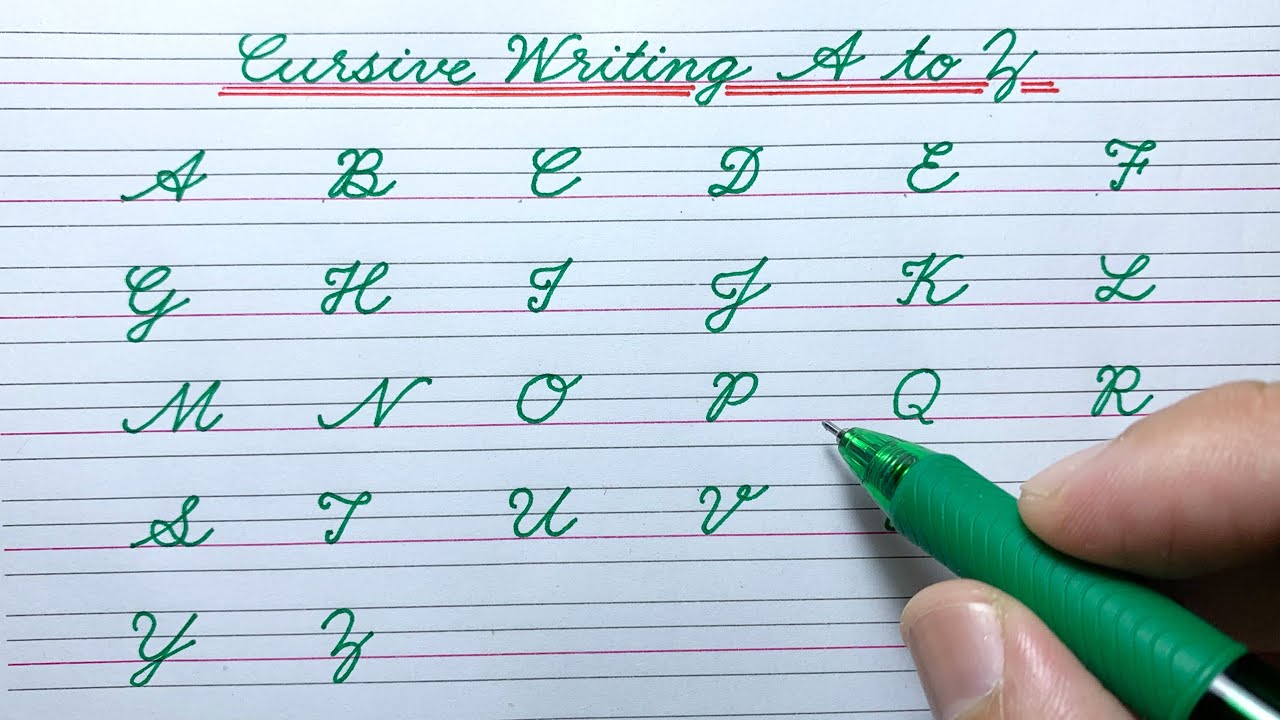 Cursive Writing A to Z
A B C D E F
G H I J K L
M N O P Q R
S T U V
Y Z